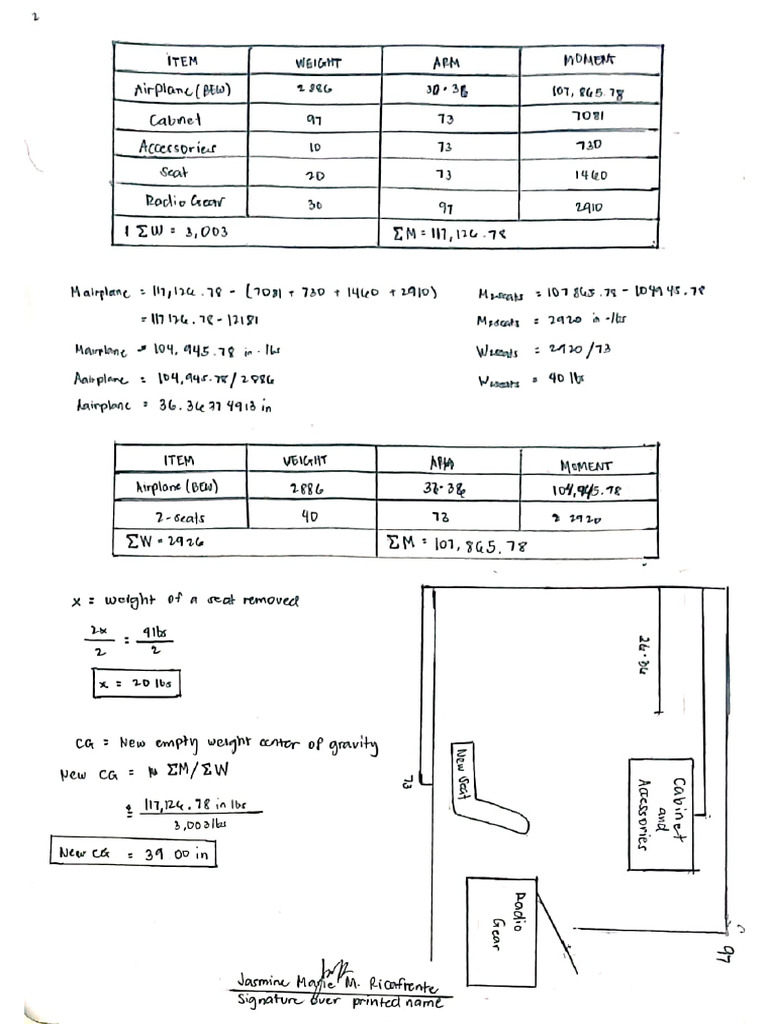 2
ITEM WEIGHT ARM MOMENT
Airplane (BEW) 2886 107,865.78
Cabinet 97 73 7081
Accessories 10 73 730
Seat 20 73 1460
Radio Gear 30 97 2910
ΣW = 3,003 ΣM = 117,126.78
Mairplane = 117,126.78 - (7081 + 730 + 1460 + 2910)
= 117126.78 - 12181
Mairplane = 104,945.78 in-lbs
Aairplane = 104,945.78/2886
Aairplane = 36.3637 4913 in
M2seats = 107865.78 - 104945.78
M2seats = 2920 in-lbs
W2seats = 2920/73
W2seats = 40 lbs
ITEM WEIGHT ARM MOMENT
Airplane (BEW) 2886 104,945.78
2-seats 40 73 2920
ΣW = 2926 ΣM = 107,865.78
x = weight of a seat removed
2x
2
=
lbs
2
x = 20 lbs
CG = New empty weight center of gravity
New CG = ΣM/ΣW
= 117,126.78 in lbs
3,003 lbs
New CG = 39.00 in
73
New Seat
26.36
Cabinet
and
Accessories
Radio
Gear
97
Jasmine Marie M. Ricafrente
Signature over printed name